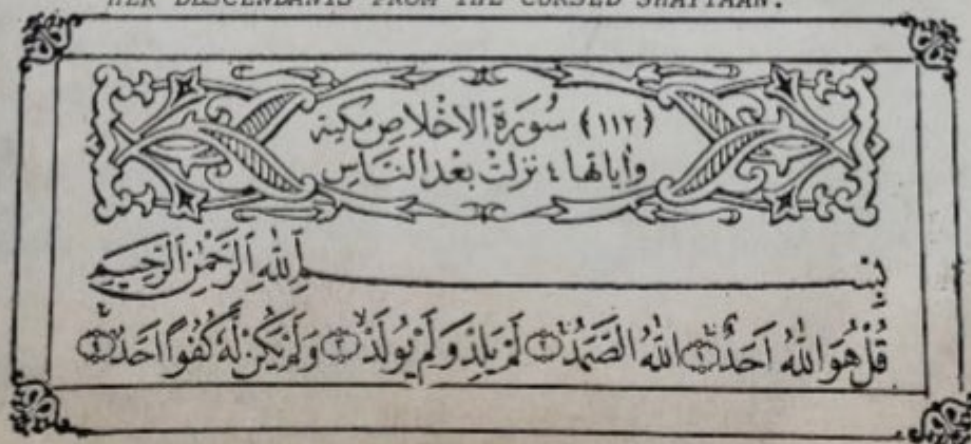 HER DESCENDANTS FROM THE CURSED SHAYTAAN.
(١١٢) سُورَةُ الاخْلَاصِ مَكِّيَّة
وَاٰيَاتُهَا ٤ نَزَلَتْ بَعْدَ النَّاسِ
بِسْمِ اللّٰهِ الرَّحْمٰنِ الرَّحِيْمِ
قُلْ هُوَ اللّٰهُ اَحَدٌ ۝١ اَللّٰهُ الصَّمَدُ ۝٢ لَمْ يَلِدْ وَلَمْ يُوْلَدْ ۝٣ وَلَمْ يَكُنْ لَّهٗ كُفُوًا اَحَدٌ ۝٤